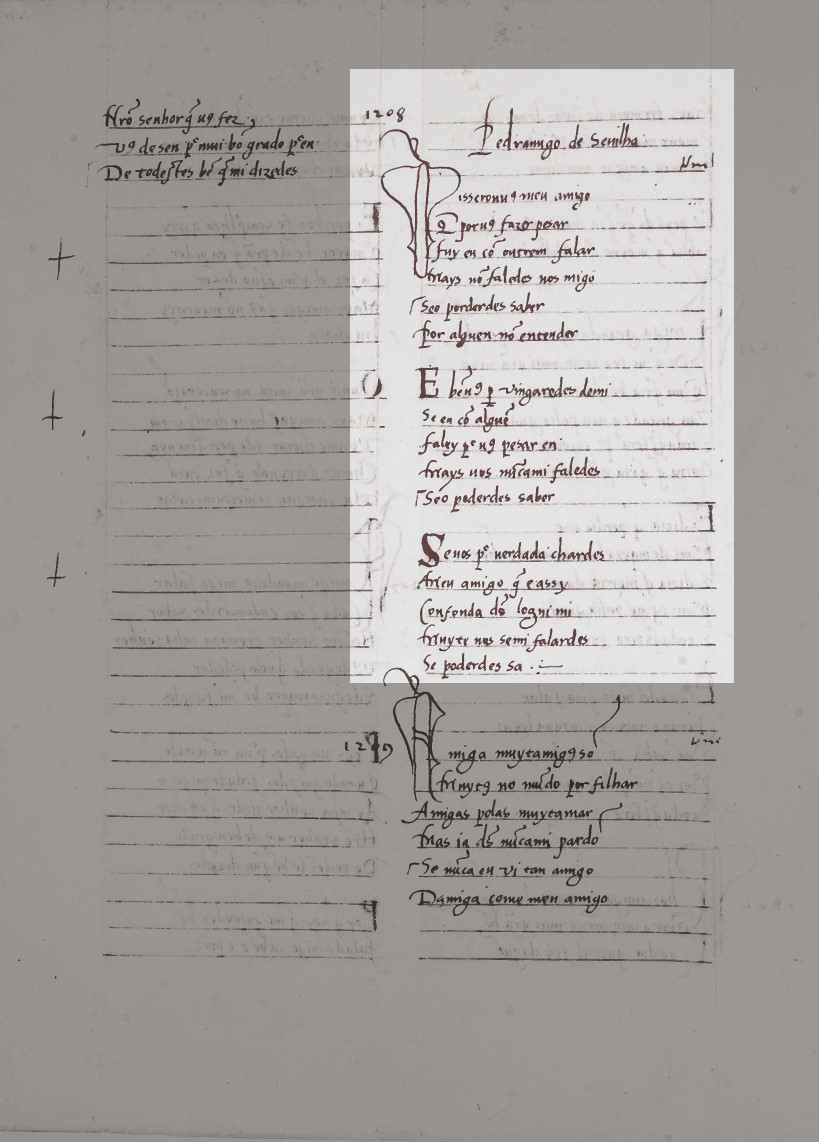 Nr̃o senhor q̃ uꝯ fez
Vꝯ desen p̃ mui bõ grado p̃ en
De todestes bẽ q̃ mi dizedes
1208
Pedramigo de Seuilha
isseronuꝯ meu amigo
Q̃ poruꝯ fazer pesar
fuy eu cõ outrem falar
Mays nõ faledes uos migo
Seo poderdes saber
Por alguen nõ entender
E bẽ uꝯ ꝑ vingaredes demi
Se eu cõ alguẽ
faley p̃ uꝯ pesar en
Mays uos nũcami faledes
Seo poderdes saber
Se uos p̃ uerdada chardes
Meu amigo q̃ e assy
Confonda dẽs logui mi
Muyte uos semi falardes
Se poderdes sa
1209
miga muytamigꝯ so
Muytꝯ no mũdo por filhar
Amigas polas muytamar
Mas ia dẽs nũcami pardo
Se nũca eu vi tan amigo
Damiga come meu amigo